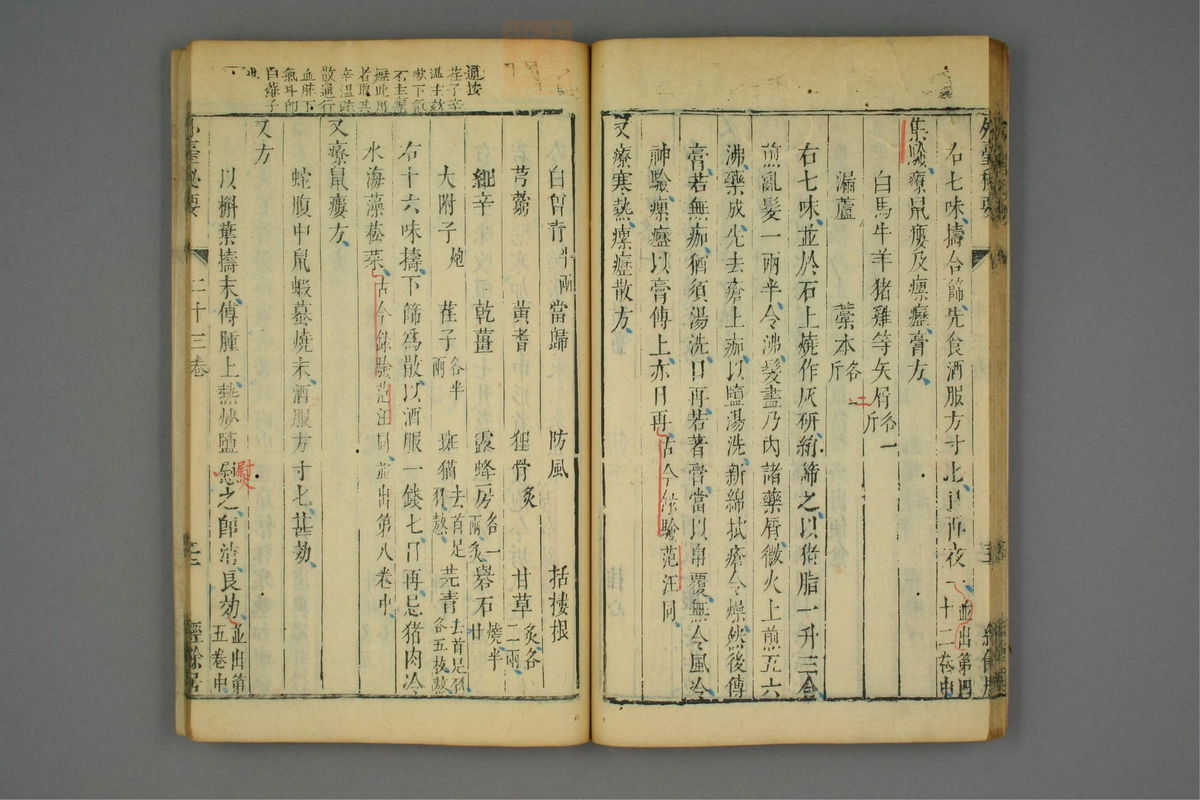 右七味擣合篩先食酒服方寸匕日再夜一並出第四十二卷中
集驗療鼠瘻及瘰癧膏方
白馬牛羊猪雞等矢屑各一斤
漏蘆　藁本各二斤
右七味並於石上燒作灰研絹篩之以猪脂一升三合
煎亂髮一兩半令沸髮盡乃內諸藥屑微火上煎五六
沸藥成先去瘡上痂以鹽湯洗新綿拭瘡令燥然後傅
膏若無痂猶須湯洗日再若著膏當以帛覆無令風冷
神驗瘰癧以膏傅上亦日再古今錄驗范汪同
又療寒熱瘰癧散方
通按
荏子辛
温主欬
嗽下氣
辛溫疎
散通行
血脉下
氣
白蘇子
白曾青半兩　當歸　防風　括樓根
芎藭　黃耆　狸骨炙　甘草炙各二兩
細辛　乾薑　露蜂房各一兩炙　礜石燒半
大附子炮　荏子各半兩　斑猫去首足熬　芫青去首足各五枚熬
右十六味擣下篩爲散以酒服一錢七日再忌猪肉冷
水海藻菘菜古今錄驗范汪同並出第八卷中
又療鼠瘻方
蛇腹中鼠蝦蟇燒末酒服方寸匕甚効
又方
以槲葉擣末傅腫上熱炒鹽慰之即清良効並出第五卷中
慰
外臺秘要　二十三卷　經餘居